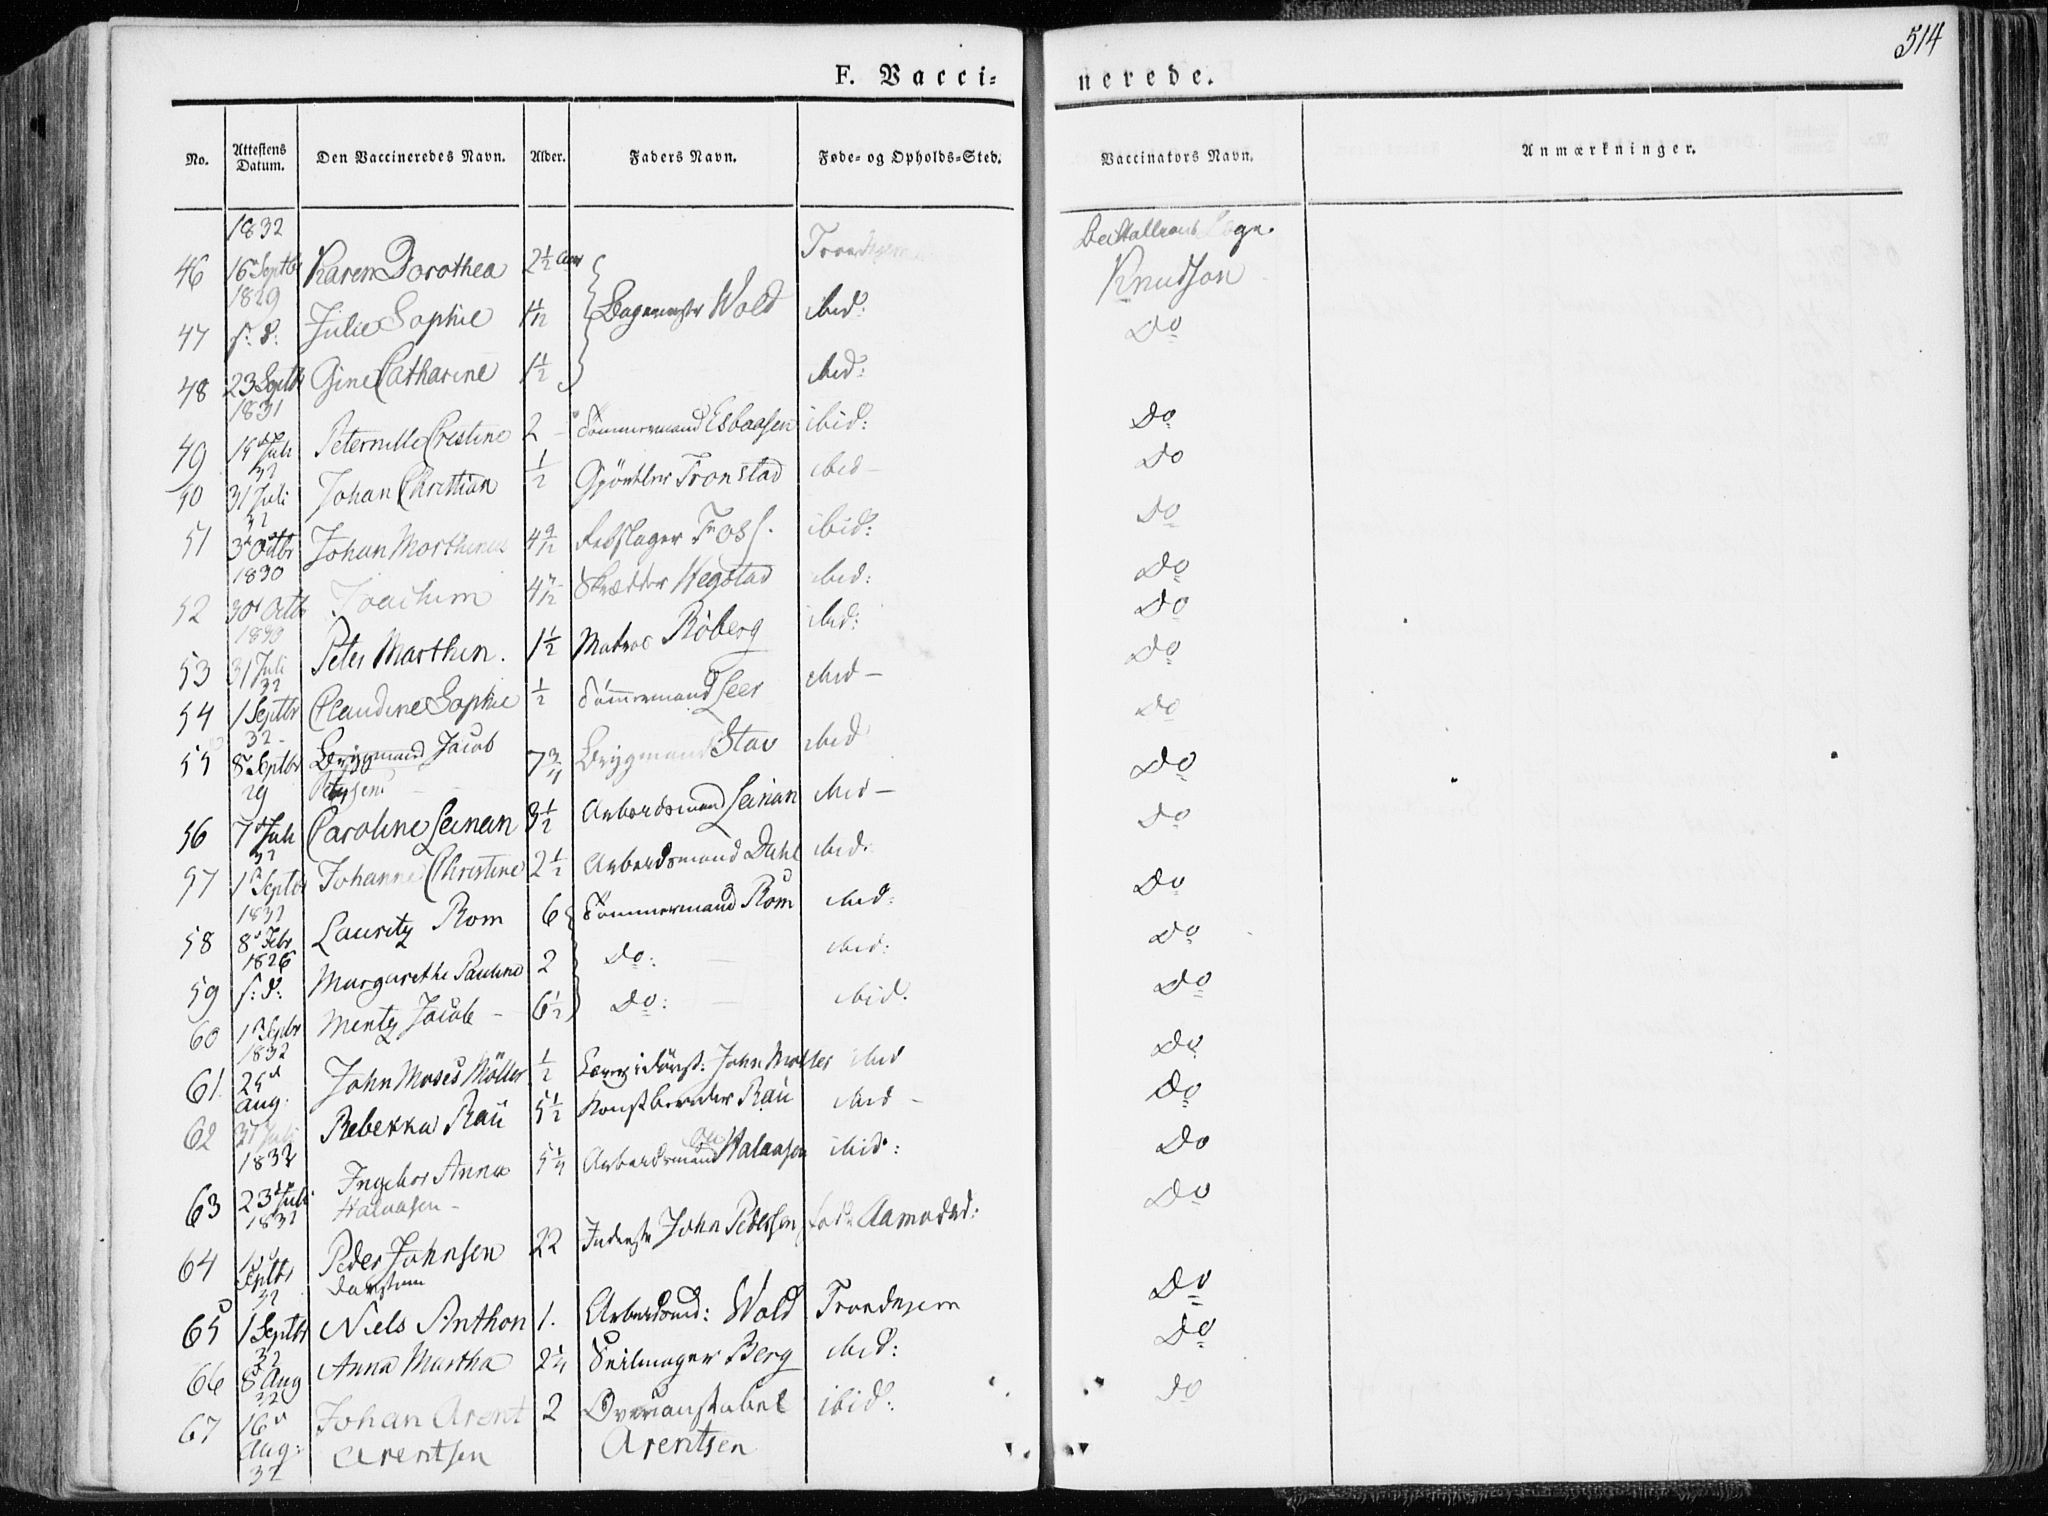 514
F. Vacci- nerede.
No. Attestens Datum. Den Vaccineredes Navn. Alder. Faders Navn. Føde- og Opholds-Sted. Vaccinators Navn. Anmærkninger.
1832
46 16 Septbr 1829 Karen Dorothea 2 1/2 Trondhjem Knudson
47 s: d: Julie Sophie Wold ibid: Do
48 23 Septbr 1831 Gine Catharine 1 1/2 ibid:
49 Juli 32 Peternille Cristine 2 Tømmermand Esbaasen ibid: Do
50 31 Juli 32 Johan Christian 1/2 Gjörtler Tronstad ibid Do
51 3 Octbr 1830 Johan Marthinus 4 9/12 Rebslager Foss. ibid: Do
52 30 Octbr 1830 Joachim 4 7/12 Skrædder Hegstad ibid: Do
53 31 Juli 32 Peter Marthin. 1 1/2 Matros Röberg ibid: Do
54 1 Septbr 32 Claudine Sophie 1/2 Tømmermand Leer ibid Do
55 8 Septbr 29 Jacob 7 3/4 Brygmand Stav ibid Do
56 7 Juli 32 Caroline Leinan 3 1/2 Arbeidsmand Leinan ibid Do
57 1 Septbr 1832 Johanne Christine 2 1/2 Arbeidsmand Dahl ibid: Do
58 8 Febr 1826 Lauritz Rom 6 Tømmermand Rom ibid: Do
59 s: d: Margarethe Pauline 2 Do: ibid: Do
60 1 Septbr 1832 Mentz Jacob 6 1/2 Do: ibid. Do
61 25 Aug. John Moses Möller 1/2 John Möller ibid Do
62 31 Juli 1832 Rebekka Rau 5 1/2 Rau ibid Do
63 23 Juli 1832 Ingebor Anna Halvasen 5 1/4 Arbeidsmand Halvasen ibid: Do
64 Septbr 32 Peder Johnsen 22 John Pedersen Do
65 1 Septbr 32 Niels Anthon 1. Arbeidsmd: Wold Trondhjem Do
66 8 Aug 32 Anna Martha 2 1/4 Seilmager Berg ibid: Do
67 16 Aug: 32 Johan Arent Arentsen 2 Overconstabel Arentsen ibid: Do